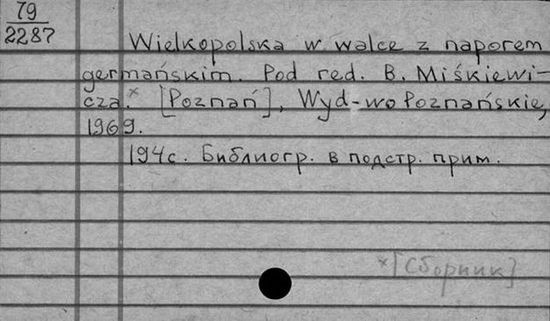 79
2287
Wielkopolska w walce z naporem
germańskim. Pod red. B. Miśkiewi-
cza.* [Poznań], Wyd-wo Poznańskie,
1969.
194с. Библиогр. в подстр. прим.
*[Сборник]